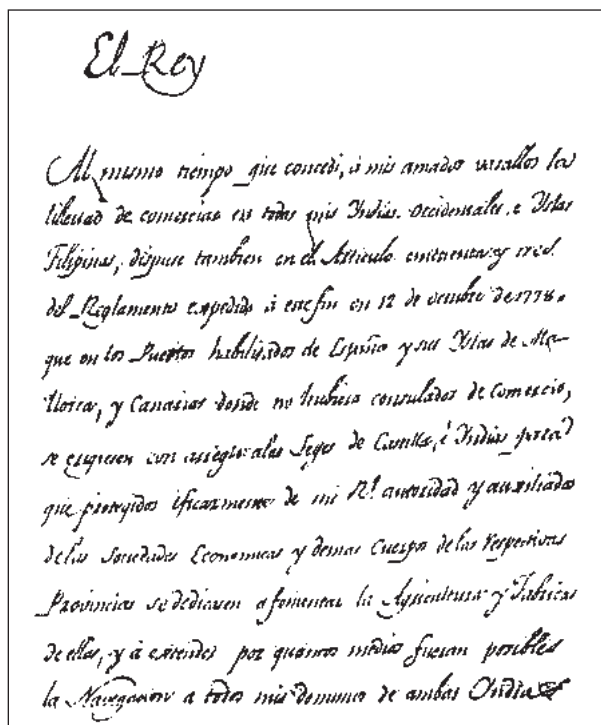 El Rey
Al mismo tiempo que concedi, á mis amados vasallos la
libertad de comerciar en todas mis Yndias Occidentales, e Yslas
Filipinas, dispuse tambien en el Articulo cincuenta y tres
del Reglamento expedido á este fin en 12 de octubre de 1778.
que en los Puertos habilitados de España y sus Yslas de Ma-
llorca, y Canarias donde no hubiese consulados de Comercio,
se erigiesen con arreglo alas Leyes de Castilla, é Yndias para
que protegidos eficazmente de mi Rl. autoridad y auxiliados
de las Sociedades Economicas y demas Cuerpos de las respectivas
Provincias se dedicasen a fomentar la Agricultura y Fabricas
de ellas, y á extender por quantos medios fuesen posibles
la Navegacion a todos mis dominios de ambas Yndias